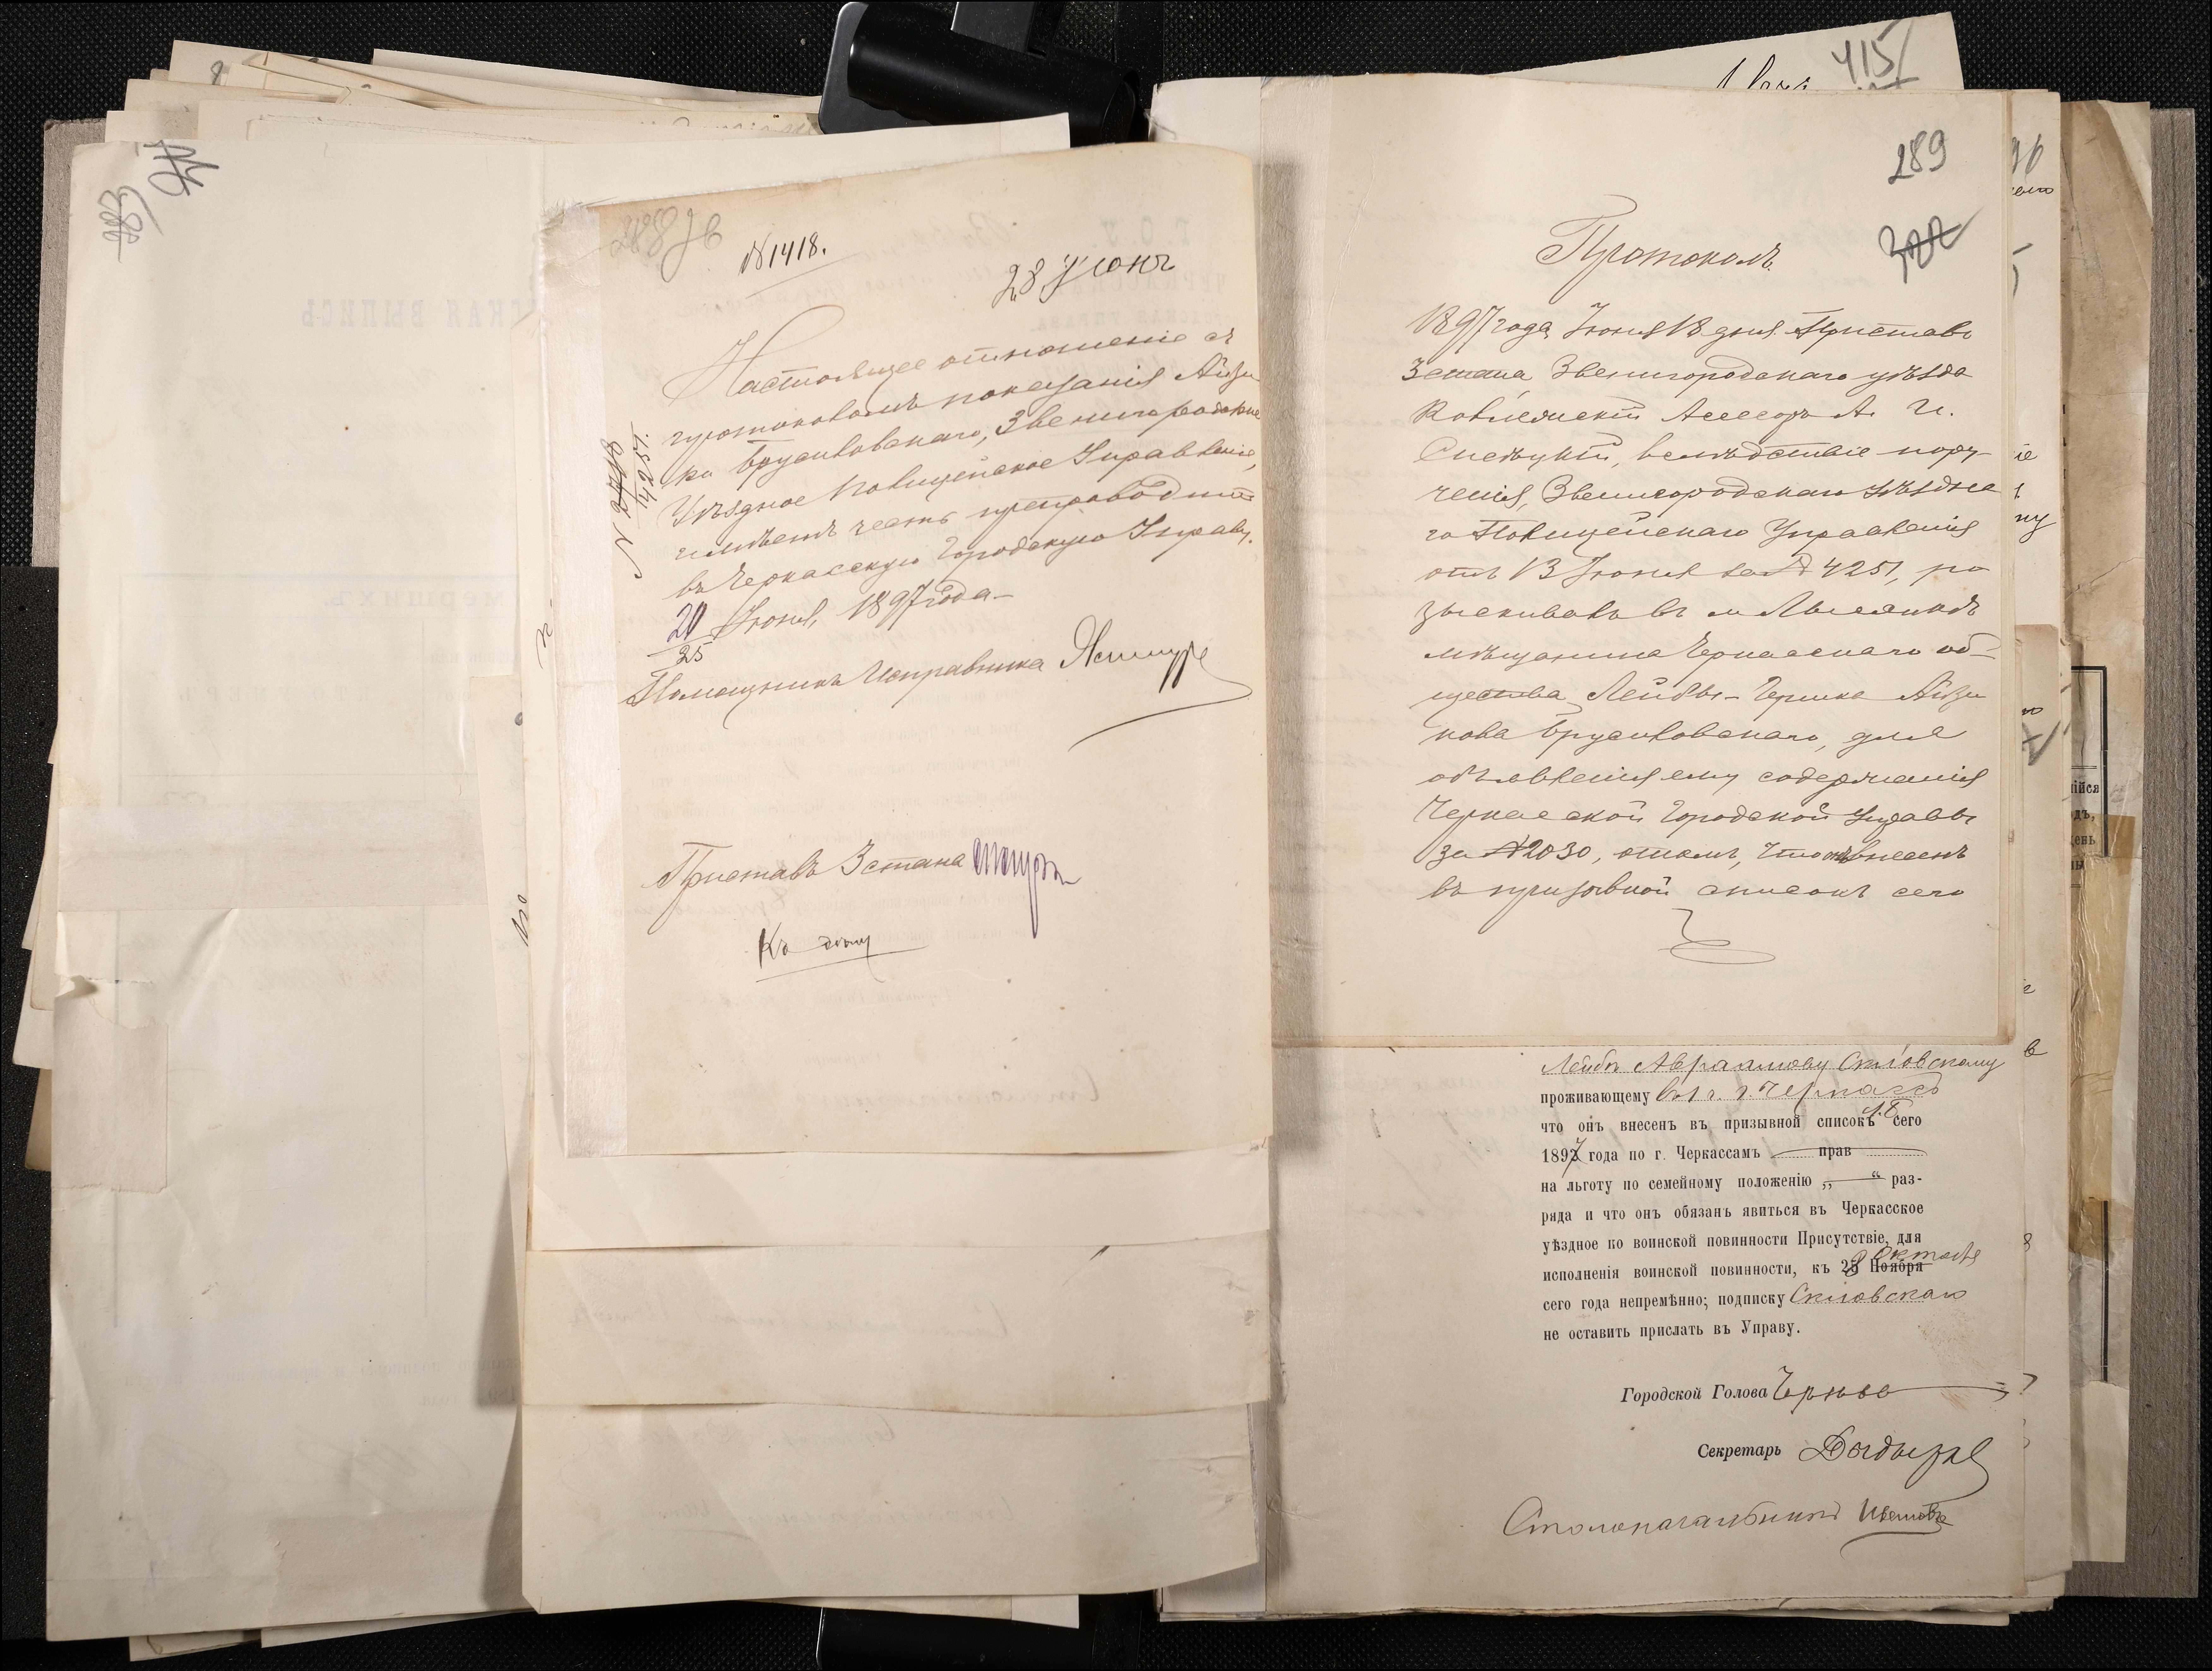 288 об
№1418.
28 Июня
Настоящее отношеніе съ
протоколомъ показанія Айзи
ка Брусиловскаго, Звенигородское
Уѣздное Полицейское Управленіе,
имѣетъ честь препроводить
въ Черкасскую Городскую Управу.
20 Іюня, 1897 года
25
№
4251.
Помощникъ Исправника
Приставъ 3 стана
Къ дѣлу
415
289
Протоколъ
1897 года Іюня 18 дня. Приставъ
3 стана Звенигородскаго уѣзда
Коллежскій Асесоръ А. И.
вслѣдствіе пору-
ченія, Звенигородскаго Уѣздна
го Полицейскаго Управленія
отъ 13 Іюня за № 4251, ро
зыскивалъ въ м. Лысянкѣ
мѣщанина Черкасскаго об-
щества Лейбы-Гершка Айзи
кова Брусиловскаго, для
объявленія ему содержанія
Черкасской Городской Управы
за №2030, о томъ, что онъ внесенъ
въ призывной списокъ сего
Лейбѣ Авраамову Скловскому
проживающему въ г. Черкассѣ
что онъ внесенъ въ призывной списокъ сего
1897 года по г. Черкассамъ прав
на льготу по семейному положенію „ “ раз-
ряда и что онъ обязанъ явиться въ Черкасское
уѣздное по воинской повинности Присутствіе, для
исполненія воинской повинности, къ Ноября Октября
сего года непремѣнно; подписку Скловскаго
не оставить прислать въ Управу.
Городской Голова
Секретарь
Столоначальникъ